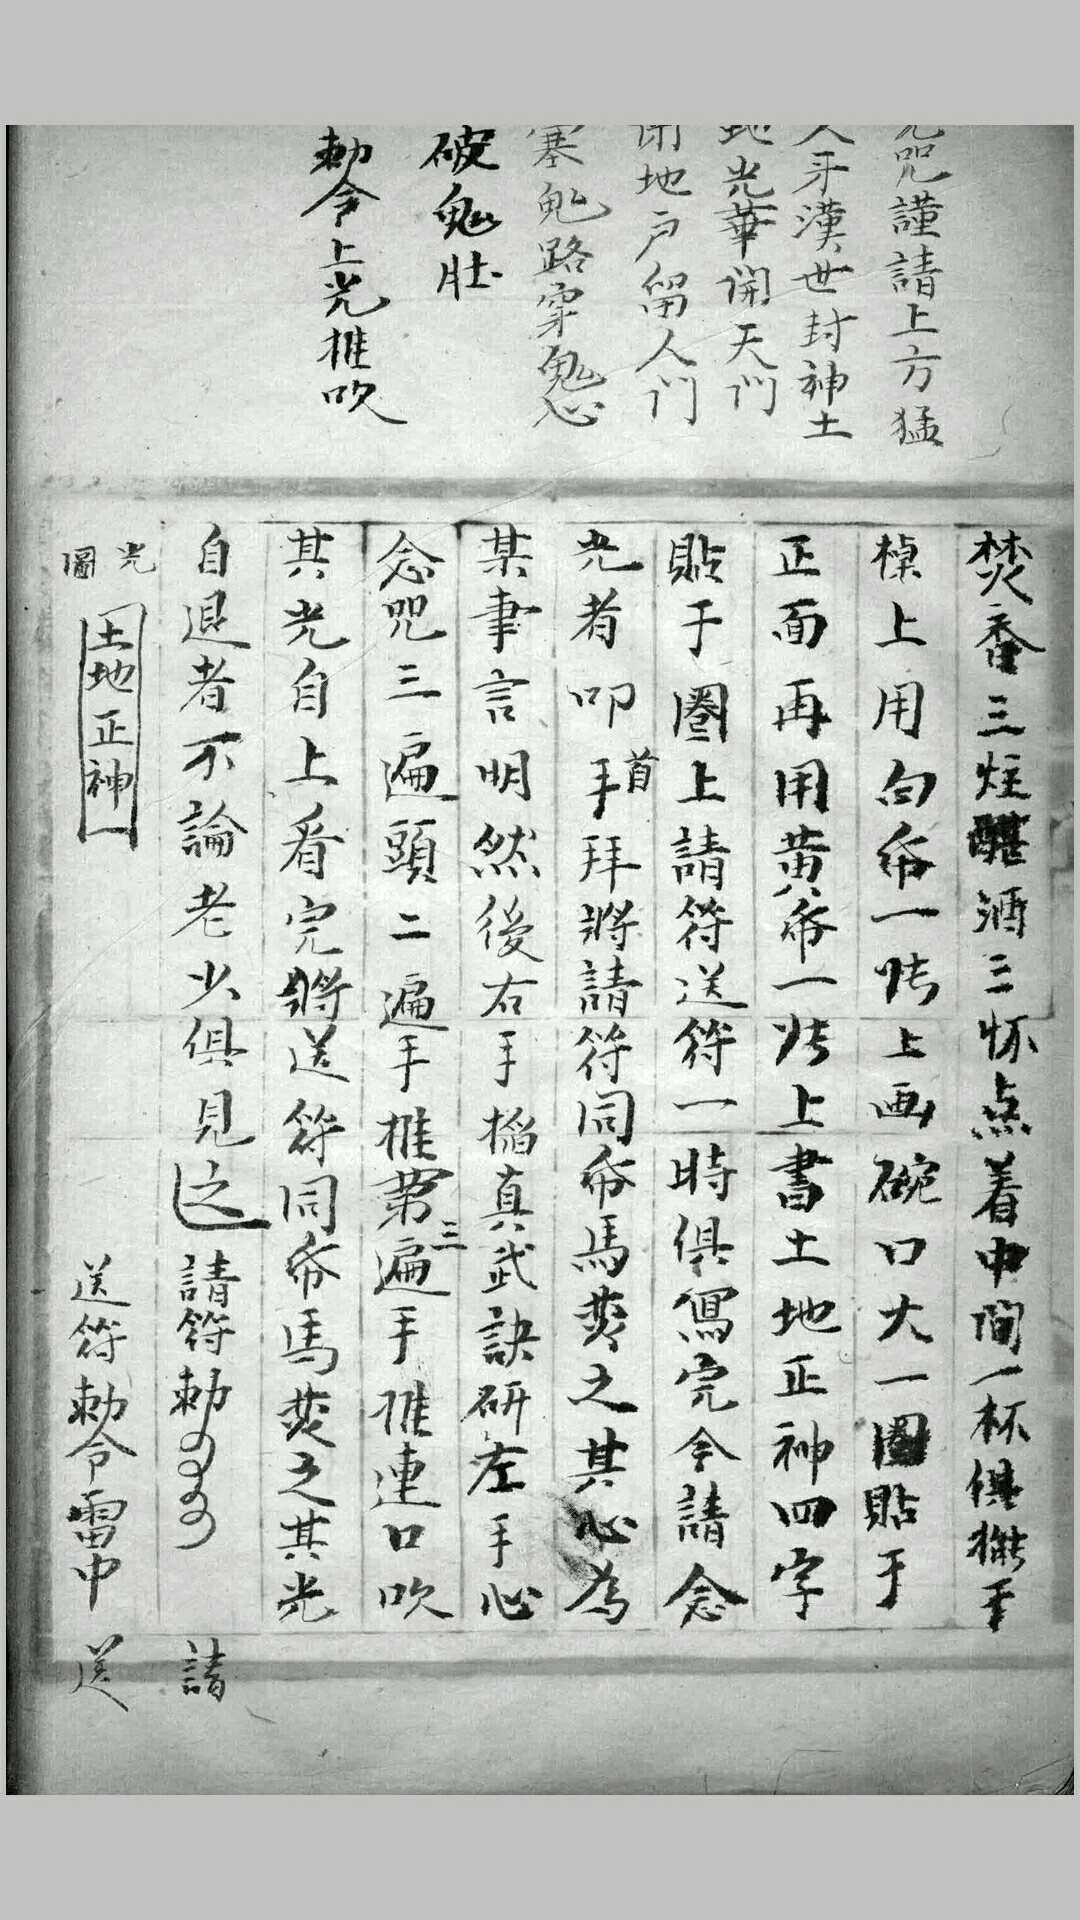 咒謹請上方猛
漢世封神土
地光華開天门
閉地户留人门
塞鬼路穿鬼心
破鬼肚
勅令上光推吹
焚香三炷醮酒三怀点着中间一杯俱搬手
棹上用白帋一张上画碗口大一圈貼于
正面再用黄帋一张上書土地正神四字
貼于圈上請符送符一時俱寫完令請念
光者叩首手拜將請符同帋馬焚之其心為
某事言明然後右手掐真武訣研左手心
念咒三遍頭二遍手推第三遍手推連口吹
其光自上看完將送符同帋馬焚之其光
自退者不論老少俱見之 請符勅 請
光圖
土地正神
送符勅令雷中 送